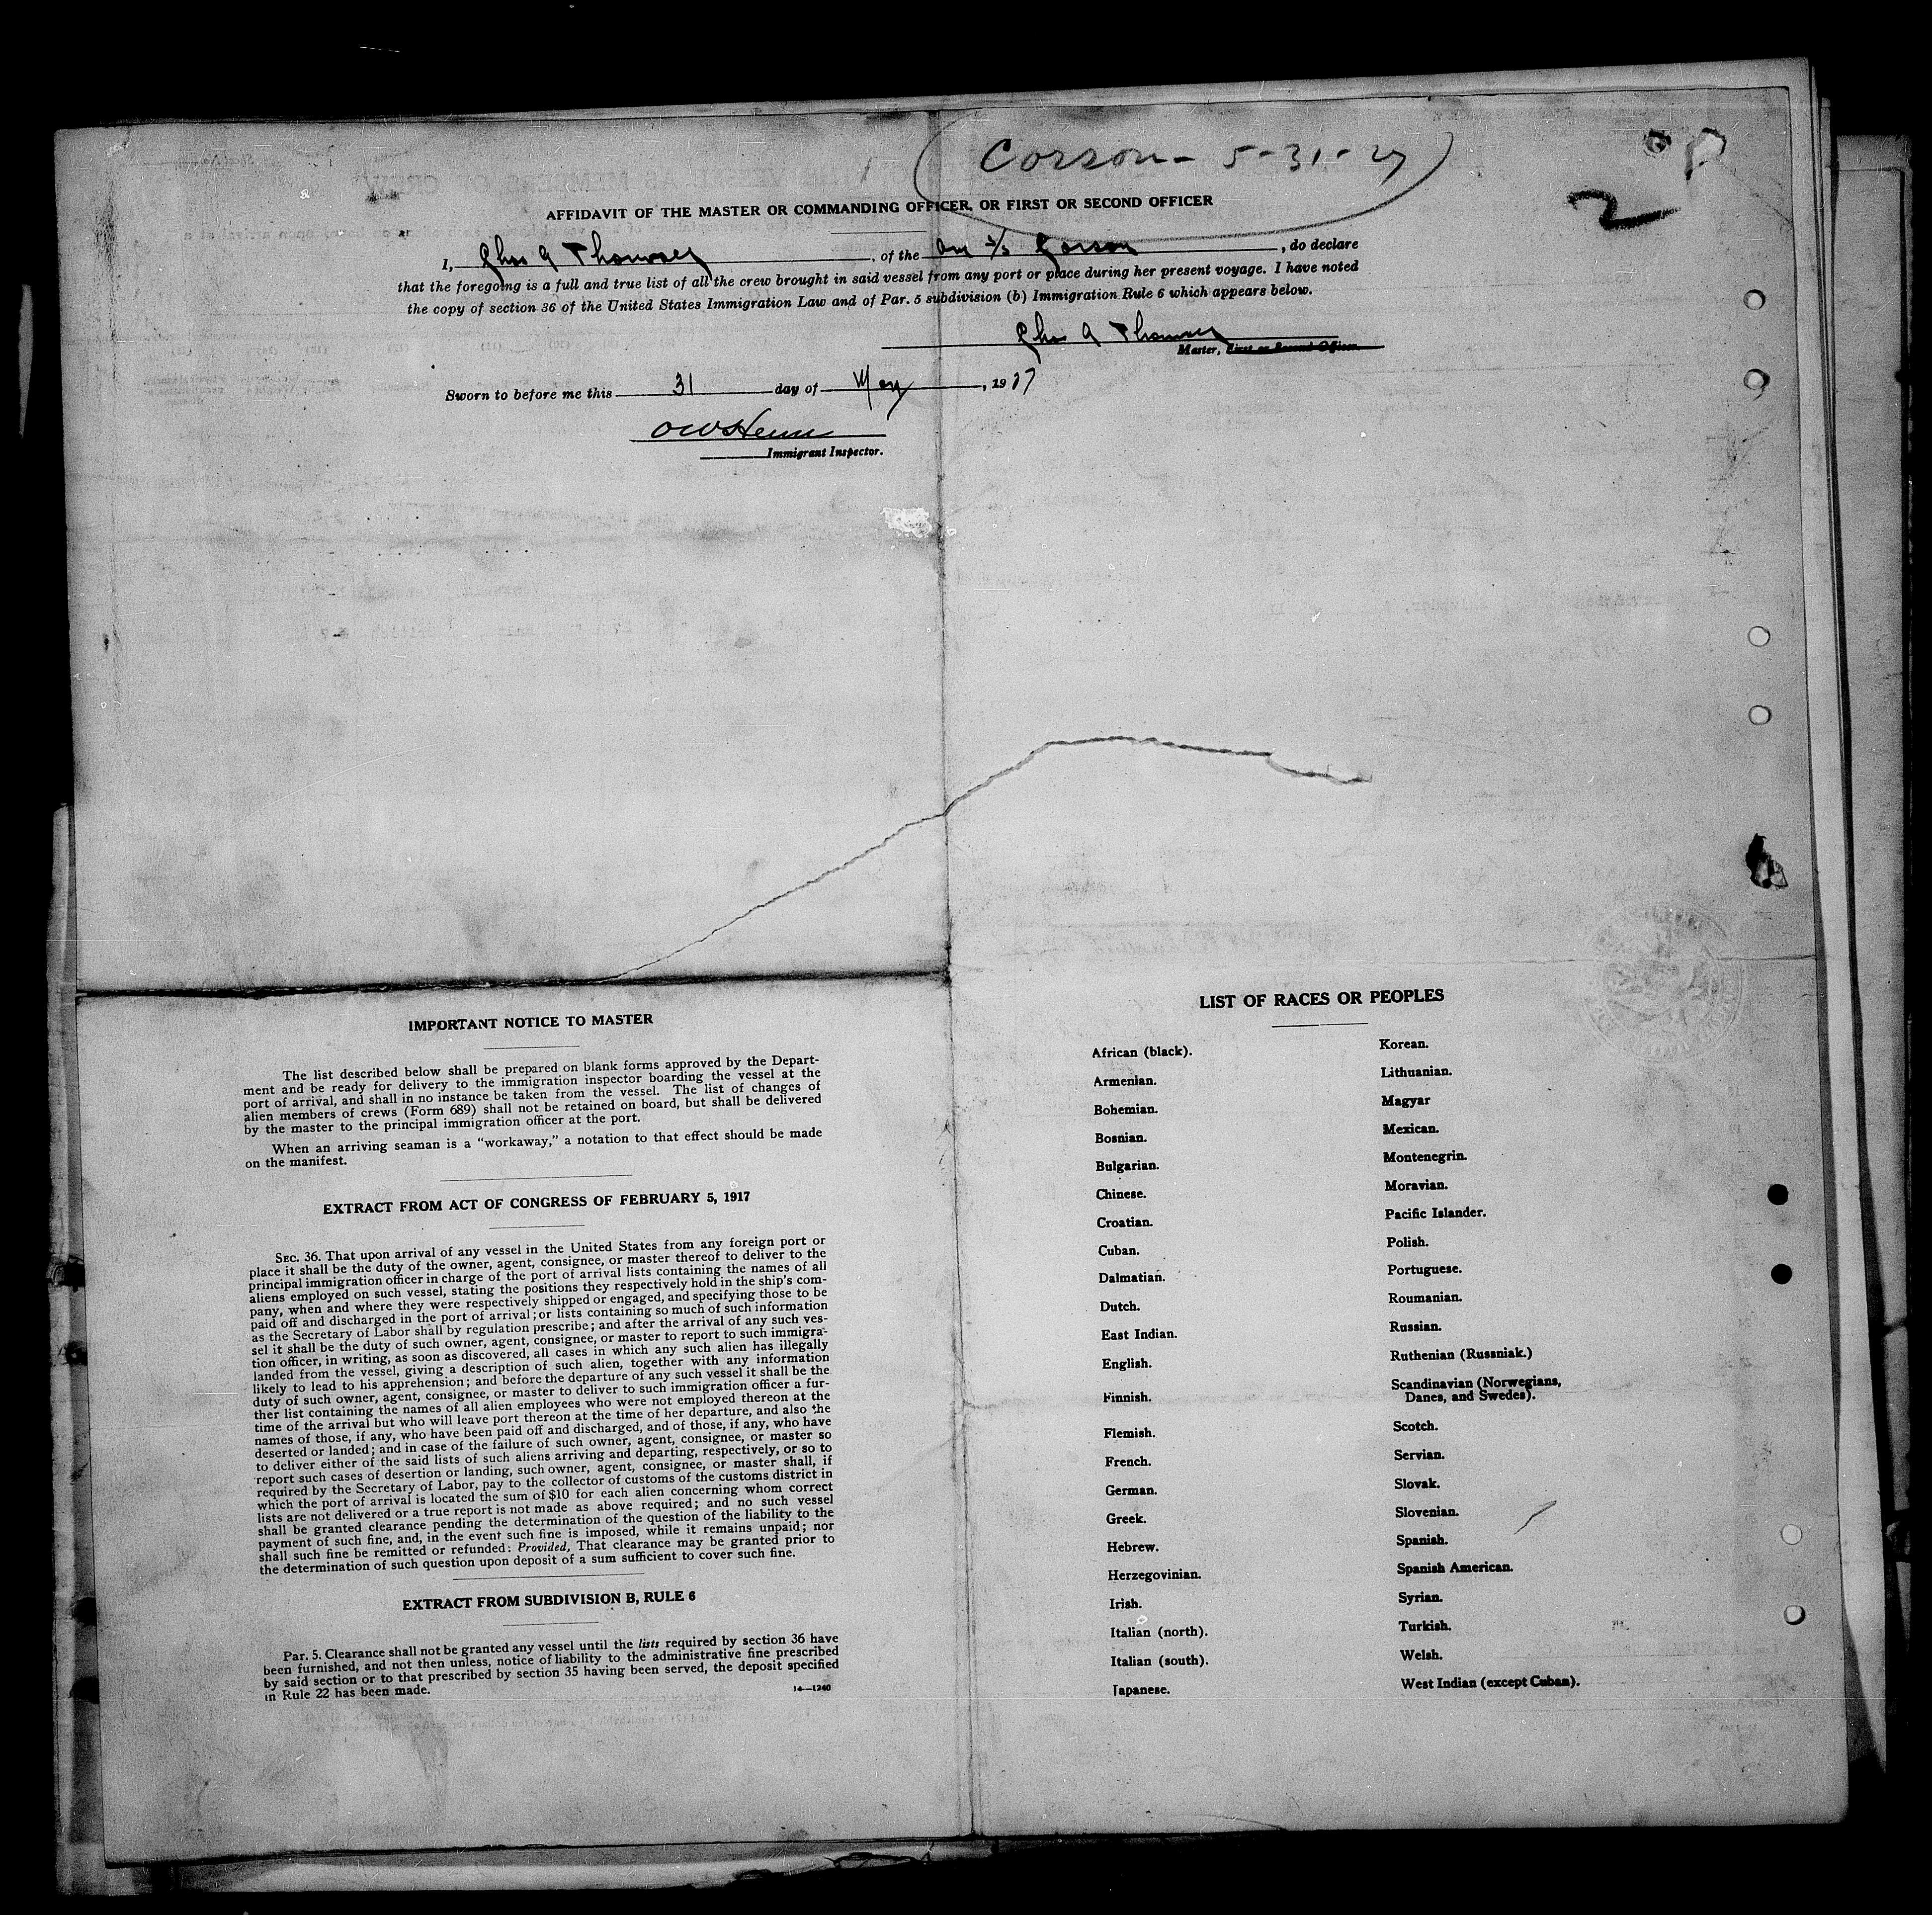 Corson - 5-31-27
2
AFFIDAVIT OF THE MASTER OR COMMANDING OFFICER, OR FIRST OR SECOND OFFICER
I, Chas A Thomsen, of the Am S/S Corson, do declare
that the foregoing is a full and true list of all the crew brought in said vessel from any port or place during her present voyage. I have noted
the copy of section 36 of the United States Immigration Law and of Par. 5 subdivision (b) Immigration Rule 6 which appears below.
Chas A Thomsen
Master, First or Second Officer.
Sworn to before me this 31 day of May, 1927
Immigrant Inspector.
IMPORTANT NOTICE TO MASTER
The list described below shall be prepared on blank forms approved by the Depart-
ment and be ready for delivery to the immigration inspector boarding the vessel at the
port of arrival, and shall in no instance be taken from the vessel. The list of changes of
alien members of crews (Form 689) shall not be retained on board, but shall be delivered
by the master to the principal immigration officer at the port.
When an arriving seaman is a "workaway," a notation to that effect should be made
on the manifest.
EXTRACT FROM ACT OF CONGRESS OF FEBRUARY 5, 1917
SEC. 36. That upon arrival of any vessel in the United States from any foreign port or
place it shall be the duty of the owner, agent, consignee, or master thereof to deliver to the
principal immigration officer in charge of the port of arrival lists containing the names of all
aliens employed on such vessel, stating the positions they respectively hold in the ship's com-
pany, when and where they were respectively shipped or engaged, and specifying those to be
paid off and discharged in the port of arrival; or lists containing so much of such information
as the Secretary of Labor shall by regulation prescribe; and after the arrival of any such ves-
sel it shall be the duty of such owner, agent, consignee, or master to report to such immigra-
tion officer, in writing, as soon as discovered, all cases in which any such alien has illegally
landed from the vessel, giving a description of such alien, together with any information
likely to lead to his apprehension; and before the departure of any such vessel it shall be the
duty of such owner, agent, consignee, or master to deliver to such immigration officer a fur-
ther list containing the names of all alien employees who were not employed thereon at the
time of the arrival but who will leave port thereon at the time of her departure, and also the
names of those, if any, who have been paid off and discharged, and of those, if any, who have
deserted or landed; and in case of the failure of such owner, agent, consignee, or master so
to deliver either of the said lists of such aliens arriving and departing, respectively, or so to
report such cases of desertion or landing, such owner, agent, consignee, or master shall, if
required by the Secretary of Labor, pay to the collector of customs of the customs district in
which the port of arrival is located the sum of $10 for each alien concerning whom correct
lists are not delivered or a true report is not made as above required; and no such vessel
shall be granted clearance pending the determination of the question of the liability to the
payment of such fine, and, in the event such fine is imposed, while it remains unpaid; nor
shall such fine be remitted or refunded: Provided, That clearance may be granted prior to
the determination of such question upon deposit of a sum sufficient to cover such fine.
EXTRACT FROM SUBDIVISION B, RULE 6
Par. 5. Clearance shall not be granted any vessel until the lists required by section 36 have
been furnished, and not then unless, notice of liability to the administrative fine prescribed
by said section or to that prescribed by section 35 having been served, the deposit specified
in Rule 22 has been made.
14—1240
LIST OF RACES OR PEOPLES
African (black).
Armenian.
Bohemian.
Bosnian.
Bulgarian.
Chinese.
Croatian.
Cuban.
Dalmatian.
Dutch.
East Indian.
English.
Finnish.
Flemish.
French.
German.
Greek.
Hebrew.
Herzegovinian.
Irish.
Italian (north).
Italian (south).
Japanese.
Korean.
Lithuanian.
Magyar
Mexican.
Montenegrin.
Moravian.
Pacific Islander.
Polish.
Portuguese.
Roumanian.
Russian.
Ruthenian (Russniak.)
Scandinavian (Norwegians,
Danes, and Swedes).
Scotch.
Servian.
Slovak.
Slovenian.
Spanish.
Spanish American.
Syrian.
Turkish.
Welsh.
West Indian (except Cuban).